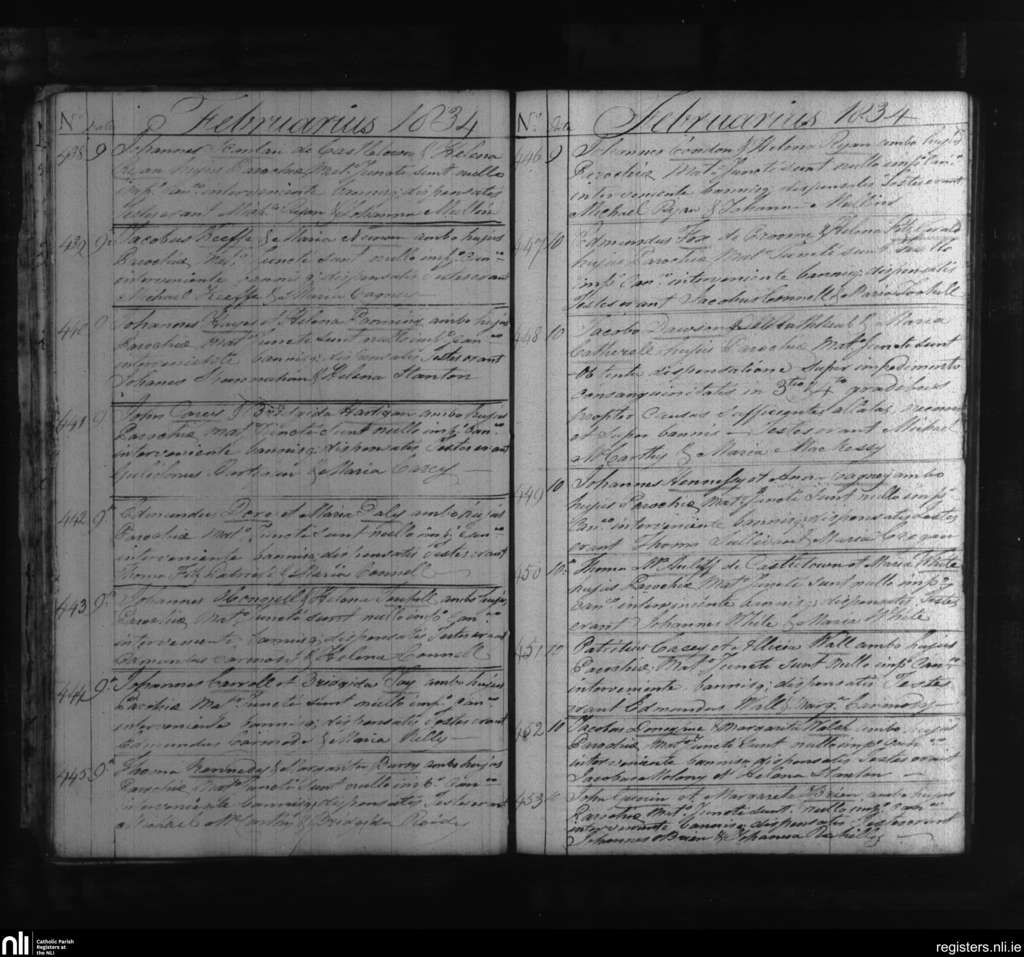 Nº Februarius 1834
438 9 Johannes de Castletown & Helena
Ryan hujus Parochiæ Matº Juncti sunt nullo
impº canº interveniente bannisq; dispensatis
Testes erant Michl Ryan & Johanna Mullins
439 9 Jacobus Keeffe & Maria ambo hujus
Parochiæ Matº Juncti sunt nullo impº Canº
interveniente bannisq; dispensatis Testes erant
Michael Keeffe & Maria Cagney
440 9 Johannes et Helena ambo hujus
Parochiæ Matº Juncti sunt nullo impº canº
interveniente bannisq; dispensatis Testes erant
Johanes & Helena Stanton
441 9 John Carey & Brigida Hartigan ambo hujus
Parochiæ Matº Juncti sunt nullo impº Canº
interveniente bannisq; dispensatis Testes erant
Gulielmus Hartigan & Maria Carey
442 9 Edmundus et Maria Daly ambo hujus
Parochiæ Matº Juncti sunt nullo impº Canº
interveniente bannisq; dispensatis Testes erant
Thoma Fitz Patrick & Maria Connell
443 9 Johannes & Helena ambo hujus
Parochiæ Matº Juncti sunt nullo impº Canº
interveniente bannisq; dispensatis Testes erant
Edmundus Carmody & Helena Connell
444 9 Johannes Carroll et Bridgida Foy ambo hujus
Parochiæ Matº Juncti sunt nullo impº canº
interveniente bannisq; dispensatis Testes erant
Edmundus Carmody & Maria Kelly
445 9 Thoma Kennedy & Margarita Barry ambo hujus
Parochiæ Matº Juncti sunt nullo impº Canº
interveniente bannisq; dispensatis Testes erant
Michael & Bridgida
Nº Februarius 1834
446 9 Johannes Condon & Helena Ryan ambo hujus
Parochiæ Matº Juncti sunt nullo impº Canº
interveniente bannisq; dispensatis Testes erant
Michael Ryan & Johanna Mullins
447 10 Edmundus Fox de Broome & Helena Fitzgerald
hujus Parochiæ Matº Juncti sunt nullo
impº Canº interveniente bannisq; dispensatis
Testes erant Jacobus Connell & Maria
448 10 Jacobo Dawson de & Maria
hujus Parochiæ Matº Juncti sunt
obtenta dispensatione super impedimento
consanguinitatis in 3tio 4to gradibus
propter Causas sufficientes allatas
et super bannis Testes erant Michael
McCarthy & Maria Mackessy
449 10 Johannes Hennessy et Ana Cagney ambo
hujus Parochiæ Matº Juncti sunt nullo impº
Canº interveniente bannisq; dispensatis Testes
erant Thoma Sullivan & Maria Cregan
450 10 Thoma McAuliff de Castletown et Maria White
hujus Parochiæ Matº Juncti sunt nullo impº
canº interveniente bannisq; dispensatis Testes
erant Johannes White & Maria White
451 10 Patritius Casey et Allicia Wall ambo hujus
Parochiæ Matº Juncti sunt nullo impº Canº
interveniente bannisq; dispensatis Testes
erant Edmundus Wall & Marg. Carmody
452 10 Jacobus & Margarita Walsh ambo hujus
Parochiæ Matº Juncti sunt nullo impº Canº
interveniente bannisq; dispensatis Testes erant
Jacobus Molony et Helena Stanton
453 John et Margaret Brien ambo hujus
Parochiæ Matº Juncti sunt nullo impº Canº
interveniente bannisq; dispensatis Testes erant
Johannes OBrien & Johanna
nli Catholic Parish
Registers at
the NLI
registers.nli.ie